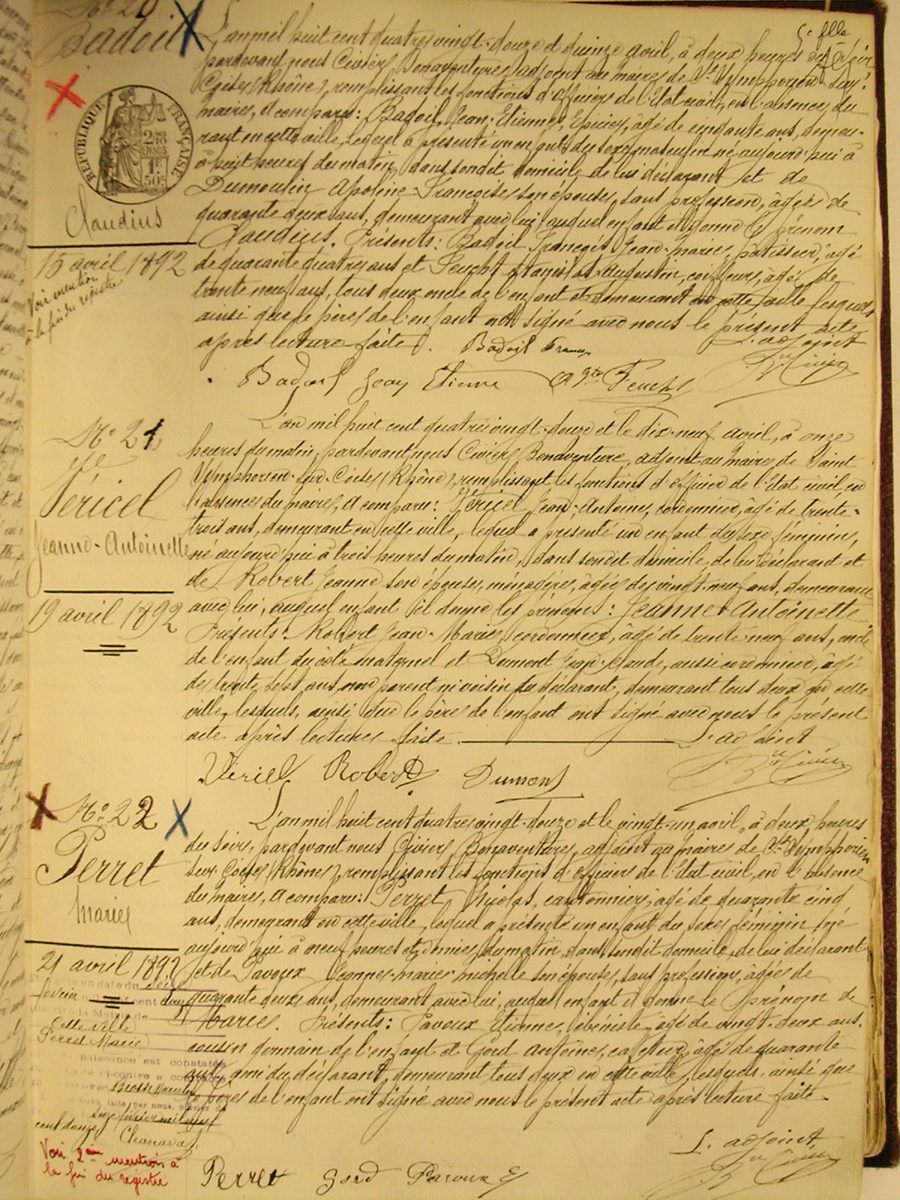 N° 20
Badoil
RÉPUBLIQUE FRANÇAISE
Claudius
15 avril 1892
Voir mention
à la fin du registre
5e flle
L'an mil huit cent quatre vingt-douze et quinze avril, à deux heures du soir
pardevant nous Civier Bonaventure, adjoint au maire de St Symphorien sur
Coise (Rhône), remplissant les fonctions d'officier de l'Etat civil, en l'absence du
maire, a comparu: Badoil, Jean, Etienne, Epicier, âgé de cinquante ans, demeu-
rant en cette ville, lequel a présenté un enfant du sexe masculin né aujourd'hui à
huit heures du matin, dans sondit domicile, de lui déclarant et de
Dumoulin Apoline Françoise son épouse, sans profession, âgée de
quarante deux ans, demeurant avec lui, auquel enfant il donne le prénom
Claudius. Présents: Badoil François Jean-Marie, pâtissier, âgé
de quarante quatre ans et Feucht Stanislas Augustin, coiffeur, âgé de
trente neuf ans, tous deux oncle de l'enfant et demeurant en cette ville, lesquels
ainsi que le père de l'enfant ont signé avec nous le présent acte
après lecture faite. Badoil L'adjoint
Badoil Jean Etienne Feucht Civier
N° 21
Véricel
Jeanne-Antoinette
19 avril 1892
L'an mil huit cent quatre vingt-douze et le dix-neuf avril, à onze
heures du matin, pardevant nous Civier Bonaventure, adjoint au Maire de Saint
Symphorien-sur-Coise (Rhône), remplissant les fonctions d'officier de l'Etat civil, en
l'absence du maire, a comparu: Véricel Jean-Antoine, cordonnier, âgé de trente-
trois ans, demeurant en cette ville, lequel a présenté un enfant du sexe féminin,
né aujourd'hui à trois heures du matin, dans sondit domicile, de lui déclarant et
de Robert Jeanne son épouse, ménagère, âgée de vingt-neuf ans, demeurant
avec lui, auquel enfant il donne les prénoms: Jeanne-Antoinette
Présents: Robert Jean-Marie, cordonnier, âgé de trente neuf ans, oncle
de l'enfant du côté maternel et Dumont Jean Claude, aussi cordonnier, âgé
de trente sept ans, non parent ni voisin du déclarant, demeurant tous deux en cette
ville, lesquels, ainsi que le père de l'enfant ont signé avec nous le présent
acte après lecture faite. L'adjoint
Véricel Robert Dumont Civier
N° 22
Perret
Marie
21 avril 1892
L'an mil huit cent quatre vingt-douze et le vingt-un avril, à deux heures
du soir, pardevant nous Civier Bonaventure, adjoint au maire de St Symphorien
sur Coise (Rhône), remplissant les fonctions d'officier de l'Etat civil, en l'absence
du maire, a comparu: Perret Nicolas, cantonnier, âgé de quarante cinq
ans, demeurant en cette ville, lequel a présenté un enfant du sexe féminin né
aujourd'hui à neuf heures et demie du matin, dans sondit domicile, de lui déclarant
et de Pavoux Jeanne-marie michelle son épouse, sans profession, âgée de
quarante deux ans, demeurant avec lui, auquel enfant il donne le prénom de
Marie. Présents: Pavoux Etienne, ébéniste, âgé de vingt-deux ans,
cousin germain de l'enfant et Gord Antoine, cafetier, âgé de quarante
ans, ami du déclarant, demeurant tous deux en cette ville, lesquels, ainsi que
le père de l'enfant ont signé avec nous le présent acte après lecture faite.
cette ville
Perret Marie
Voir 2ème mention à
la fin du registre
L'adjoint
Perret Gord Pavoux E Civier